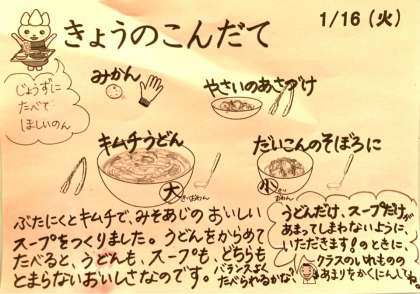 きょうのこんだて
1/16 (火)
じょうずに
たべて
ほしいのん
みかん
やさいのあさづけ
キムチうどん
だいこんのそぼろに
大
小
ぶたにくとキムチで、みそあじの おいしい
スープをつくりました。うどんをからめて
たべると、うどんも、スープも、どちらも
とまらないおいしさなのです。
バランスよく
たべられるかな?
うどんだけ、スープだけが
あまってしまわないように、
いただきます!のときに、
クラスのいれものの
あまりをかくにん